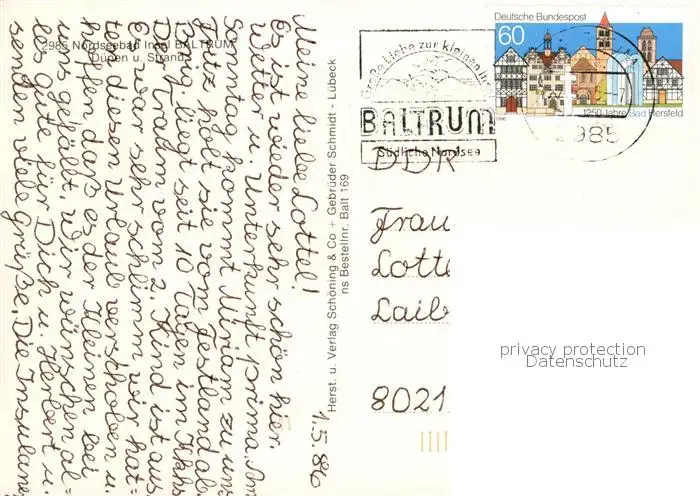 2985 Nordseebad Insel BALTRUM
Dünen u. Strand
1.5.86
Meine liebe Lottel!
Es ist wieder sehr schön hier.
Wetter u. Unterkunft prima. Am
Sonntag kommt Miriam zu uns
Fritz holt sie vom Festland ab.
Birg. liegt seit 10 Tagen im Kkhs
Der Traum vom 2. Kind ist aus
Es war sehr schlimm wir hat=
ten diesen Urlaub verschoben u.
hoffen daß es der Kleinen bei
uns gefällt. Wir wünschen al=
les gute für Dich u. Herbert u.
senden viele grüße. Die Insulaner
Herst. u. Verlag Schöning & Co + Gebrüder Schmidt - Lübeck
ns Bestellnr. Balt 169
Große Liebe zur kleinen Insel
BALTRUM
Südliche Nordsee
Deutsche Bundespost
60
1250 Jahre Bad Hersfeld
2985
DDR
Frau
Lotte
Laib
8021
privacy protection
Datenschutz